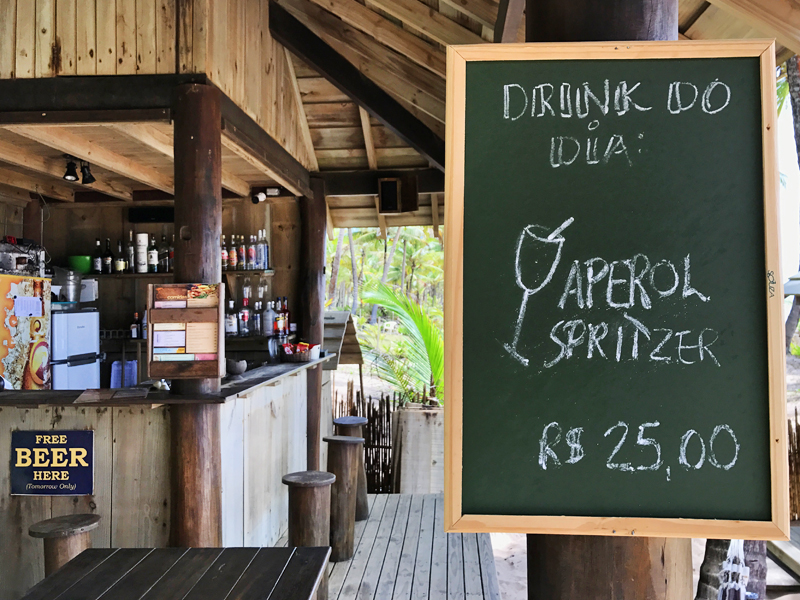 DRINK DO
DIA:
APEROL
SPRITZER
R$ 25,00
FREE
BEER
HERE
(Tomorrow Only)